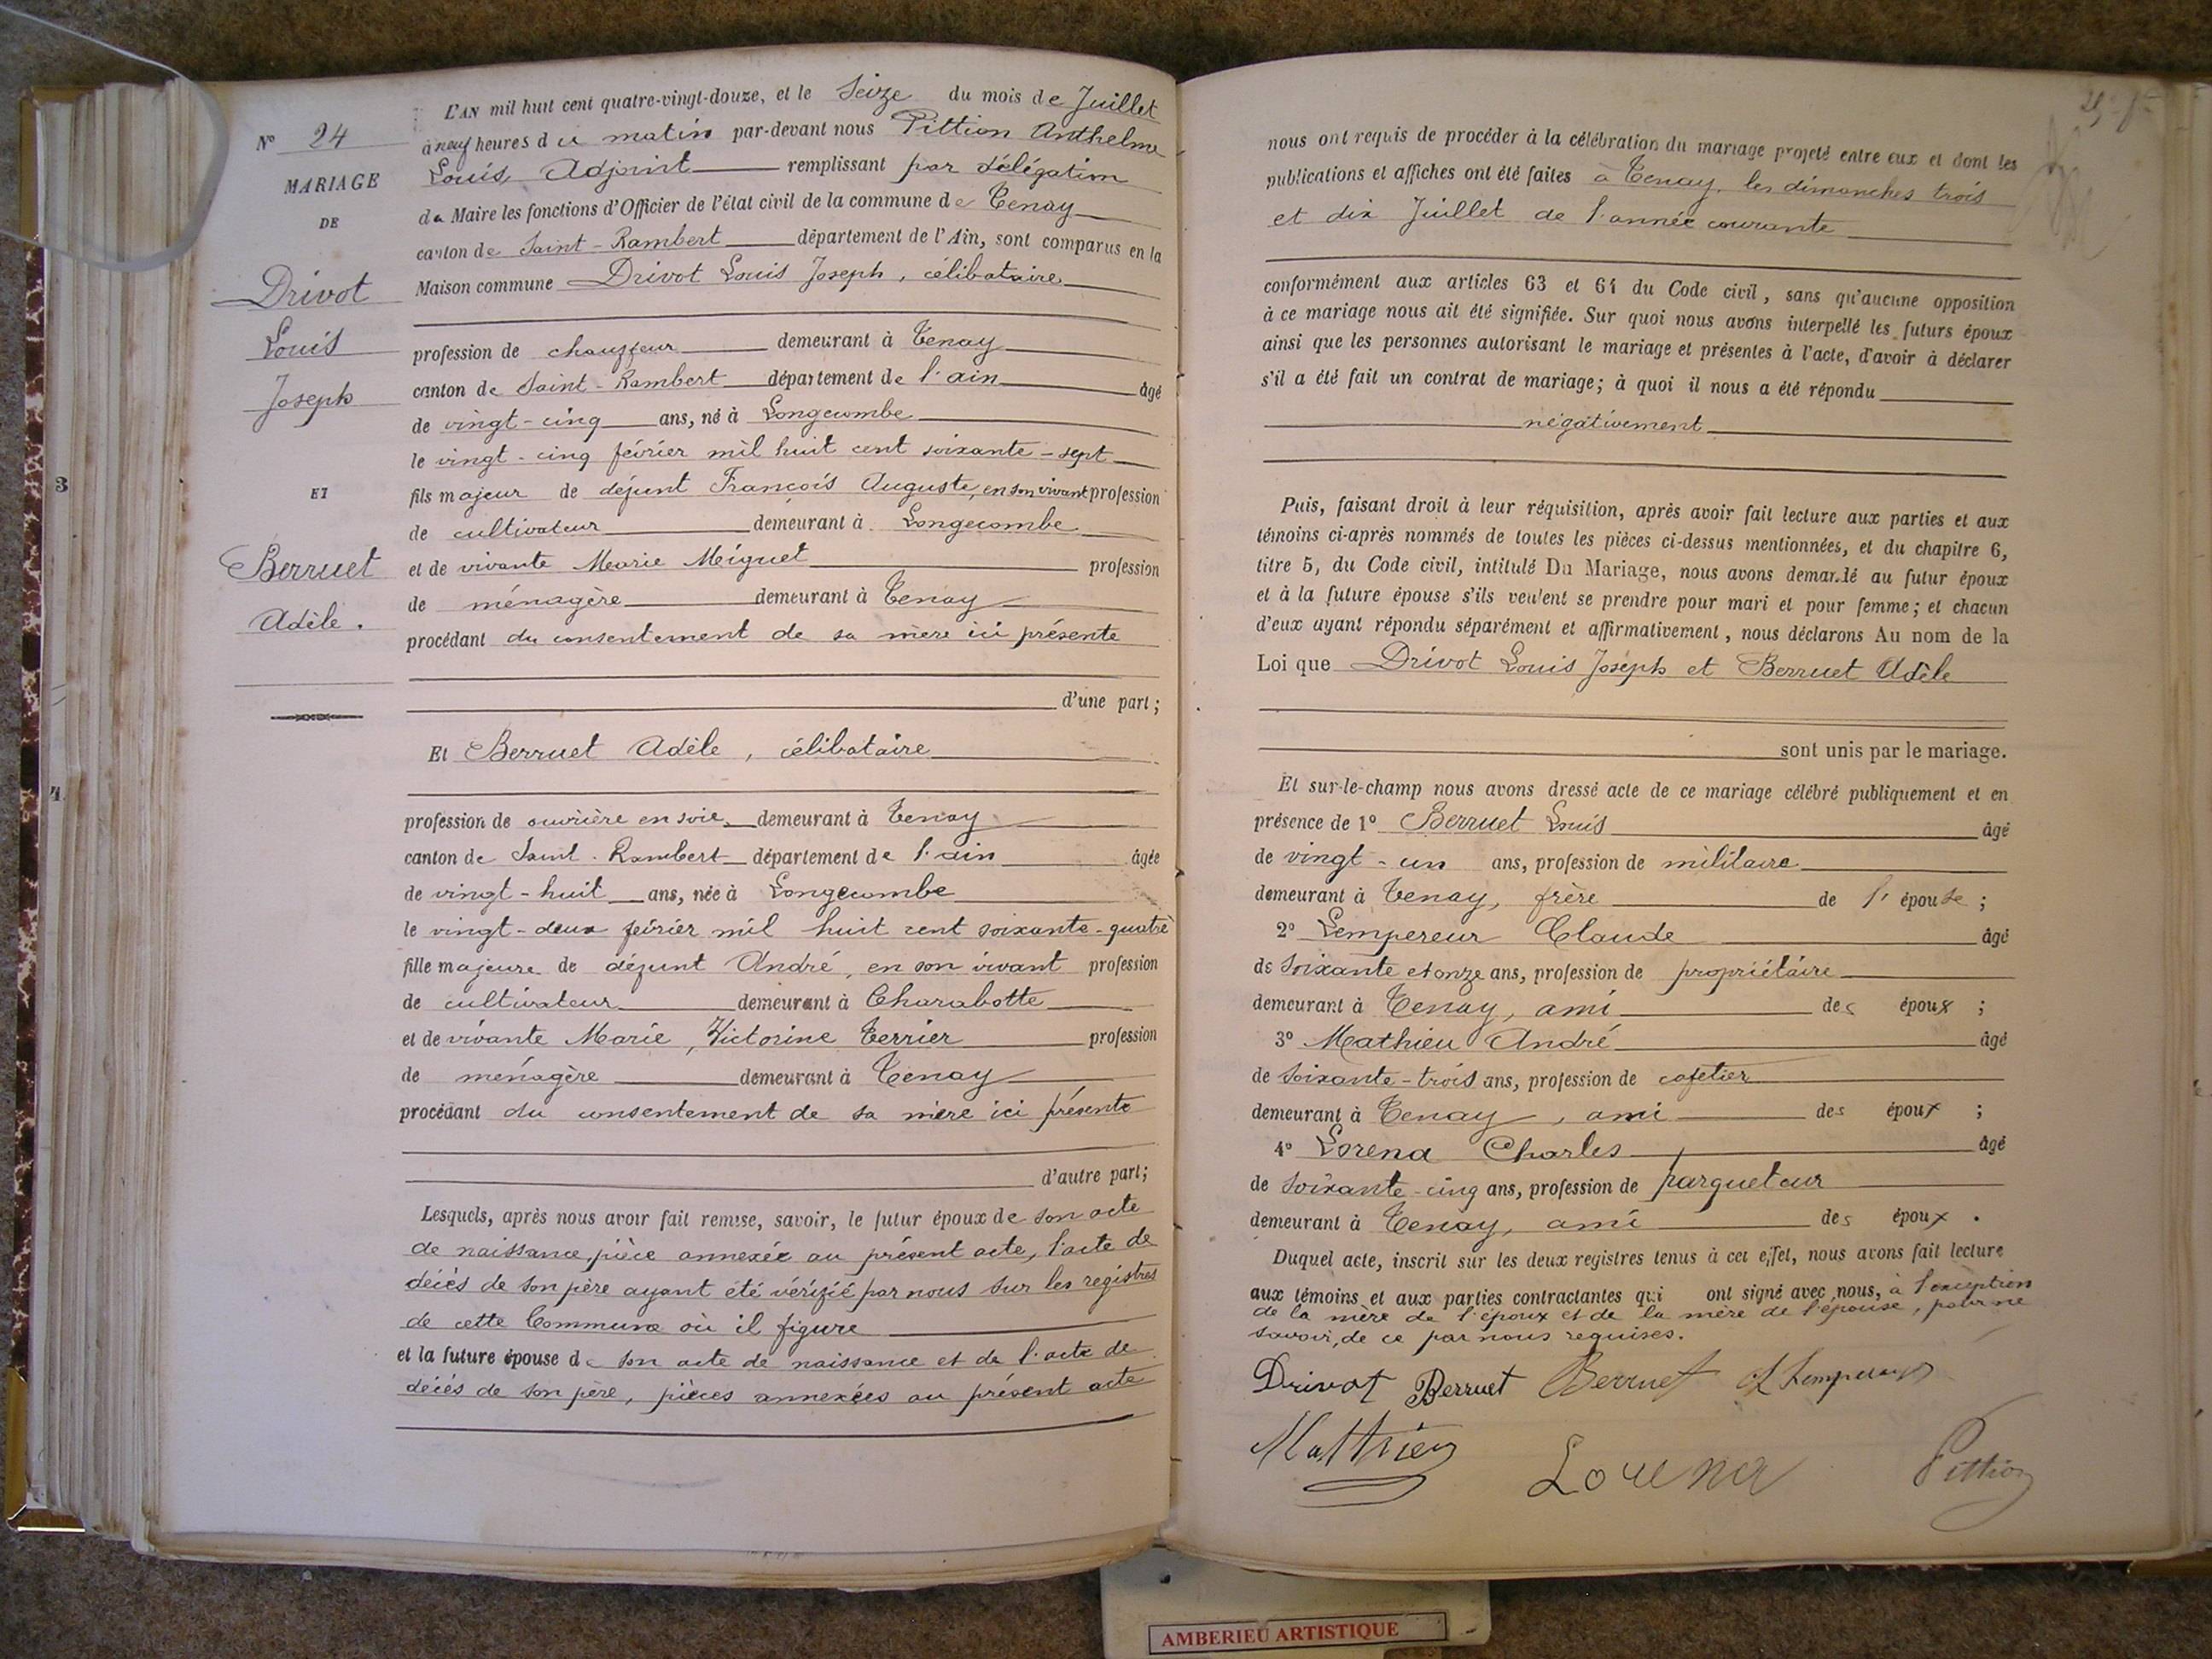 N° 24
MARIAGE
DE
Drivot
Louis
Joseph
ET
Berruet
Adèle.
3
4
L'AN mil huit cent quatre-vingt-douze, et le Seize du mois de Juillet
à neuf heures du matin par-devant nous Pittion Anthelme
Louis, Adjoint remplissant par délégation
du Maire les fonctions d'Officier de l'état civil de la commune de Tenay
canton de Saint-Rambert département de l'Ain, sont comparus en la
Maison commune Drivot Louis Joseph, célibataire
profession de chauffeur demeurant à Tenay
canton de Saint-Rambert département de l'ain âgé
de vingt-cinq ans, né à Longecombe
le vingt-cinq février mil huit cent soixante-sept
fils majeur de défunt François Auguste, en son vivant profession
de cultivateur demeurant à Longecombe
et de vivante Marie Meignet profession
de ménagère demeurant à Tenay
procédant du consentement de sa mère ici présente
d'une part;
Et Berruet Adèle, célibataire
profession de ouvrière en soie demeurant à Tenay
canton de Saint-Rambert département de l'ain âgée
de vingt-huit ans, née à Longecombe
le vingt-deux février mil huit cent soixante-quatre
fille majeure de défunt André, en son vivant profession
de cultivateur demeurant à Charabotte
et de vivante Marie, Victorine Terrier profession
de ménagère demeurant à Tenay
procédant du consentement de sa mère ici présente
d'autre part;
Lesquels, après nous avoir fait remise, savoir, le futur époux de son acte
de naissance, pièce annexée au présent acte, l'acte de
décès de son père ayant été vérifié par nous sur les registres
de cette Commune où il figure
et la future épouse de son acte de naissance et de l'acte de
décès de son père, pièces annexées au présent acte
nous ont requis de procéder à la célébration du mariage projeté entre eux et dont les
publications et affiches ont été faites à Tenay, les dimanches trois
et dix Juillet de l'année courante
conformément aux articles 63 et 64 du Code civil, sans qu'aucune opposition
à ce mariage nous ait été signifiée. Sur quoi nous avons interpellé les futurs époux
ainsi que les personnes autorisant le mariage et présentes à l'acte, d'avoir à déclarer
s'il a été fait un contrat de mariage; à quoi il nous a été répondu
négativement
Puis, faisant droit à leur réquisition, après avoir fait lecture aux parties et aux
témoins ci-après nommés de toutes les pièces ci-dessus mentionnées, et du chapitre 6,
titre 5, du Code civil, intitulé Du Mariage, nous avons demandé au futur époux
et à la future épouse s'ils veulent se prendre pour mari et pour femme; et chacun
d'eux ayant répondu séparément et affirmativement, nous déclarons Au nom de la
Loi que Drivot Louis Joseph et Berruet Adèle
sont unis par le mariage.
Et sur-le-champ nous avons dressé acte de ce mariage célébré publiquement et en
présence de 1° Berruet Louis âgé
de vingt-un ans, profession de militaire
demeurant à Tenay, frère de l'épouse;
2° Lempereur Claude âgé
de soixante et onze ans, profession de propriétaire
demeurant à Tenay, ami des époux;
3° Mathieu André âgé
de soixante-trois ans, profession de cafetier
demeurant à Tenay, ami des époux;
4° Lorena Charles âgé
de soixante-cinq ans, profession de parqueteur
demeurant à Tenay, ami des époux.
Duquel acte, inscrit sur les deux registres tenus à cet effet, nous avons fait lecture
aux témoins et aux parties contractantes qui ont signé avec nous, à l'exception
de la mère de l'époux et de la mère de l'épouse, pour ne
savoir, de ce par nous requises.
Drivot Berruet Berruet Lempereur
Mathieu Lorena Pittion
AMBERIEU ARTISTIQUE